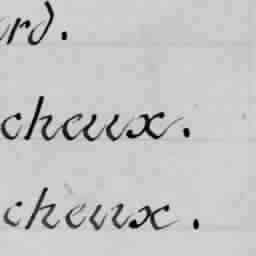 ord.
cheux.
cheux.